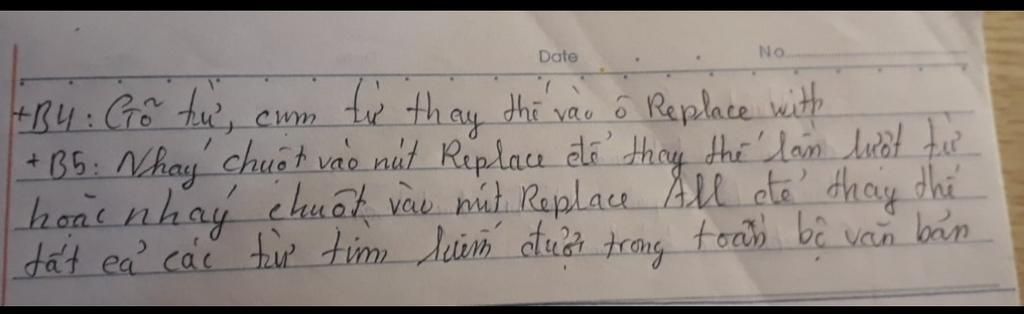 Date No
+B4: Gõ từ, cụm từ thay thế vào ô Replace with
+B5: Nháy chuột vào nút Replace để thay thế lần lượt từ
hoặc nháy chuột vào nút Replace All để thay thế
tất cả các từ tìm kiếm được trong toàn bộ văn bản